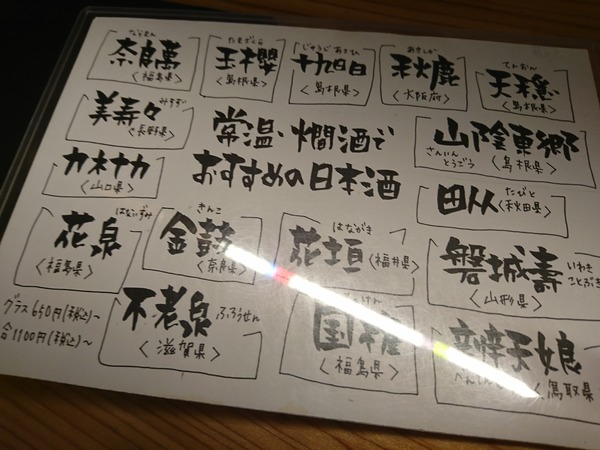 ならまん
奈良萬
〈福島県〉
たまざくら
玉櫻
〈島根県〉
じゅうじあさひ
十旭日
〈島根県〉
あきしか
秋鹿
〈大阪府〉
てんおん
天穏
〈島根県〉
美寿々
みすず
〈長野県〉
常温、燗酒で
おすすめの日本酒
山陰東郷
さんいん
とうごう
〈島根県〉
カネナカ
〈山口県〉
田从
たびと
〈秋田県〉
はないずみ
花泉
〈福島県〉
きんこ
金鼓
〈奈良県〉
はながき
花垣
〈福井県〉
磐城壽
いわき
ことぶき
〈山形県〉
グラス650円(税込)〜
合1100円(税込)〜
不老泉
ふろうせん
〈滋賀県〉
けん
国権
〈福島県〉
辨天娘
べんてん
〈鳥取県〉